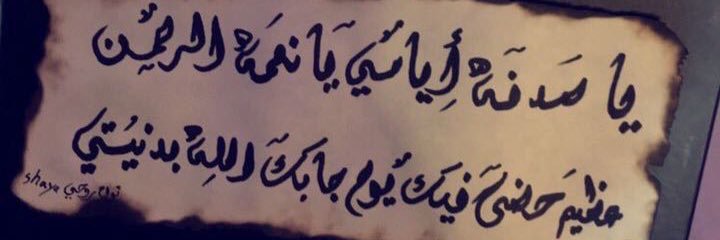 يا صدفة أيامي يا نعمة الرحمن
عظيم حضي فيك يوم جابك الله بدنيتي
shaya